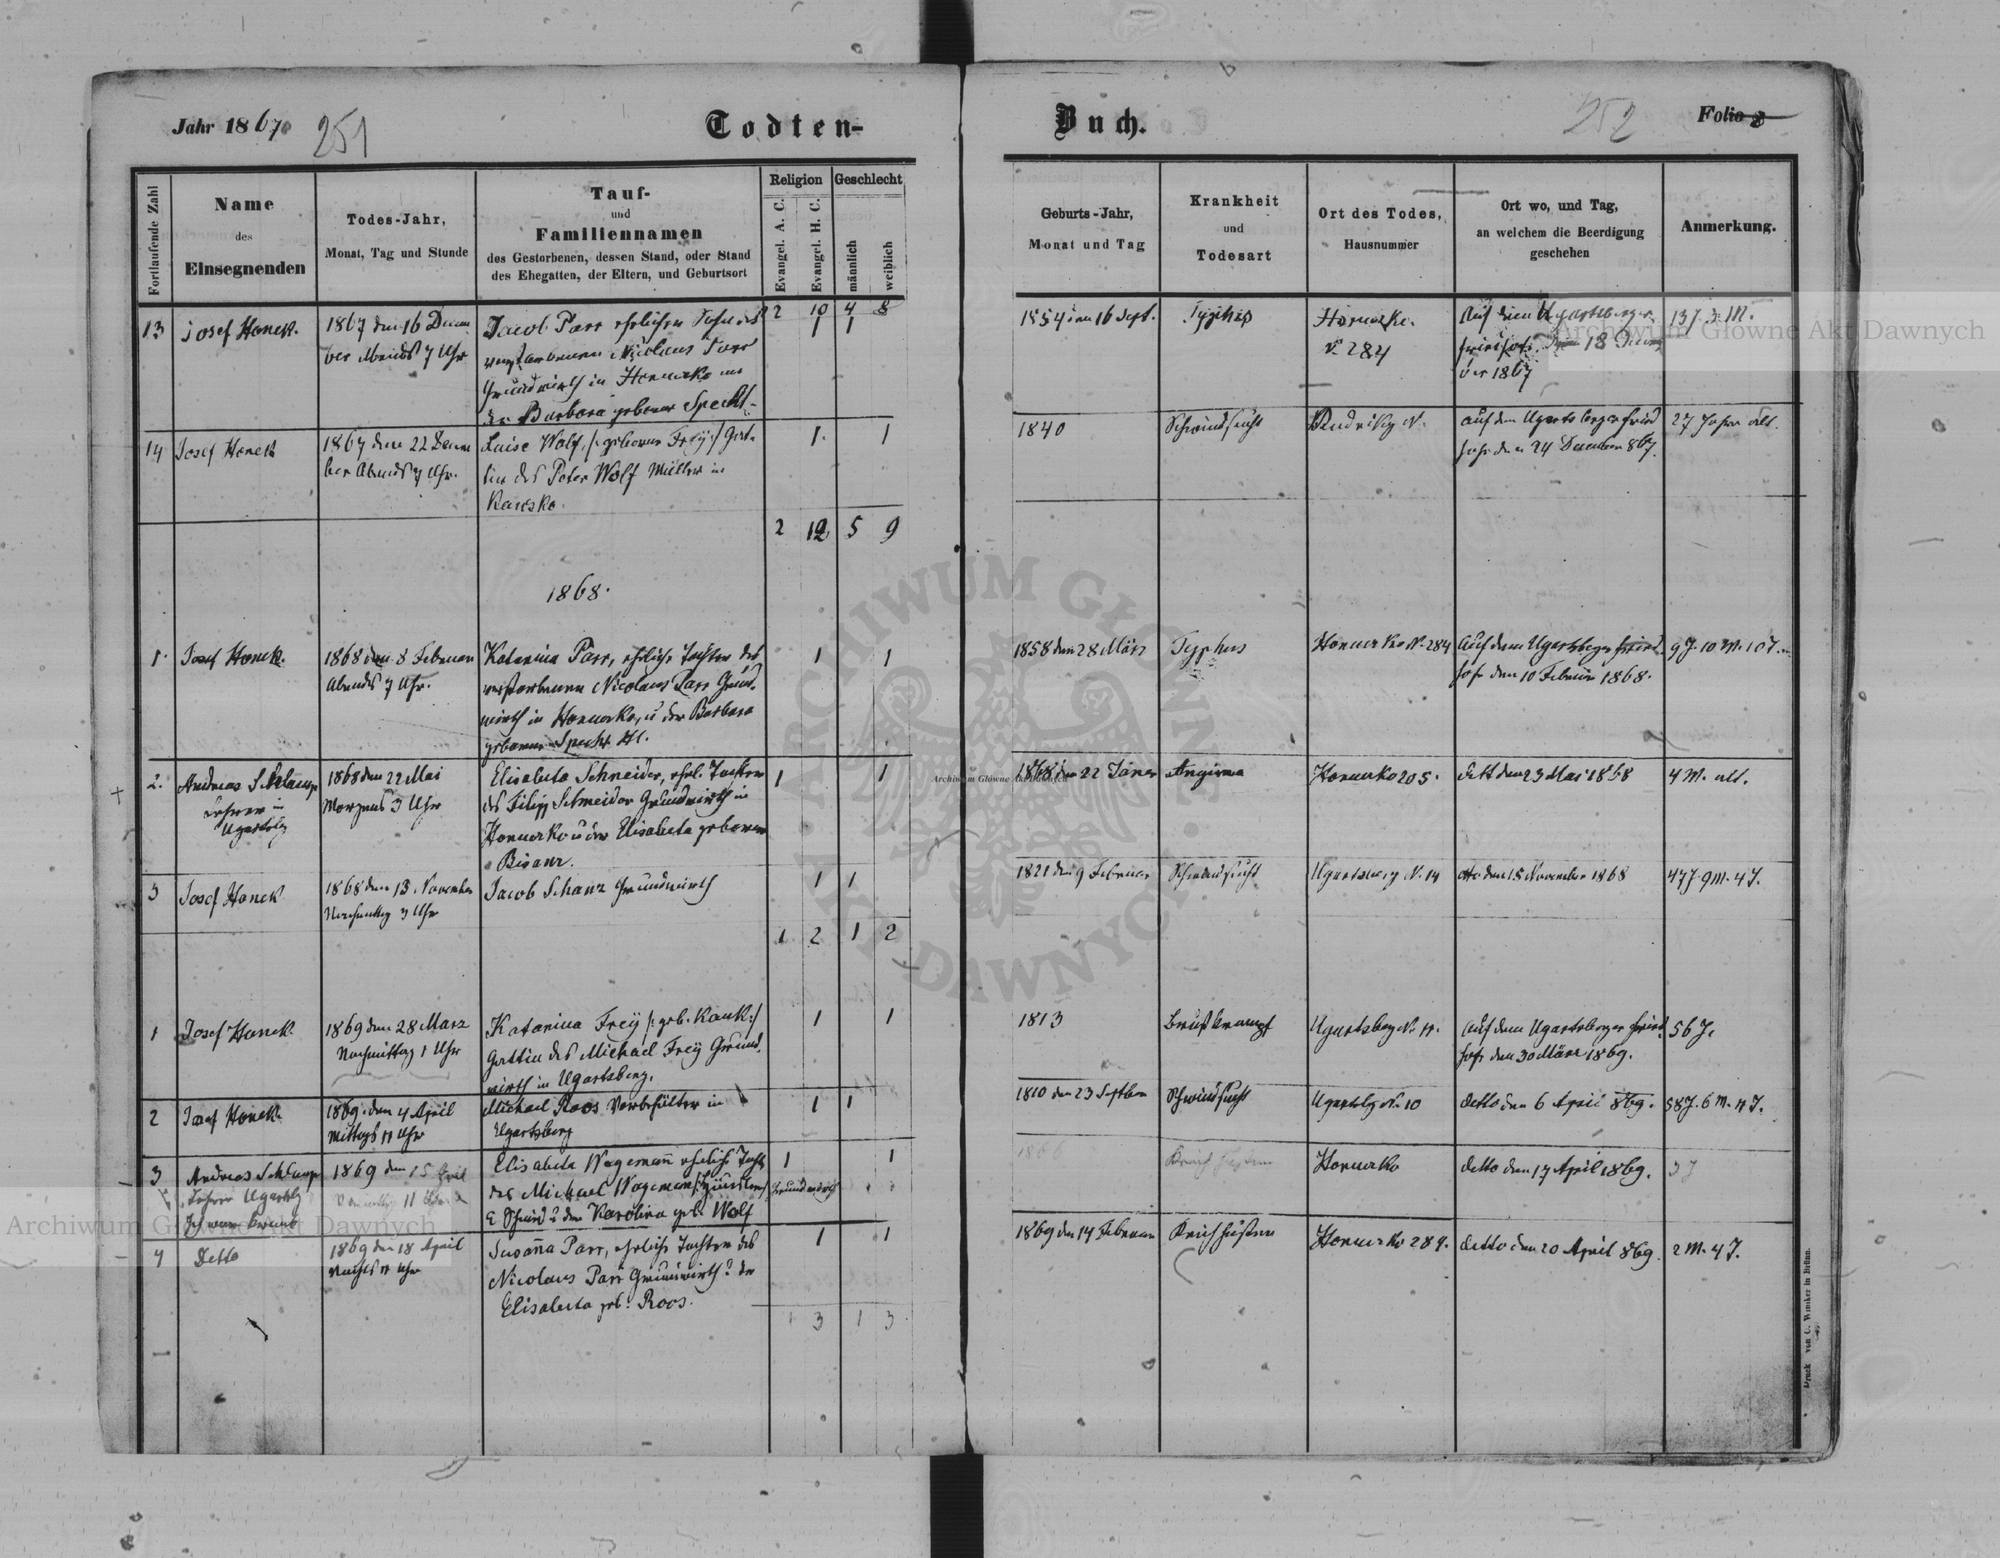 Jahr 1867
251
Todten-
Buch.
252
Folio
Fortlaufende Zahl
Name
des
Einsegnenden
Todes-Jahr,
Monat, Tag und Stunde
Tauf-
und
Familiennamen
des Gestorbenen, dessen Stand, oder Stand
des Ehegatten, der Eltern, und Geburtsort
Religion
Evangel. A. C.
Evangel. H. C.
Geschlecht
männlich
weiblich
Geburts-Jahr,
Monat und Tag
Krankheit
und
Todesart
Ort des Todes,
Hausnummer
Ort wo, und Tag,
an welchem die Beerdigung
geschehen
Anmerkung.
2 10 4 8
13
Josef Honek.
1867 den 16 Decem
ber Abends 7 Uhr
Jacob Parr ehelicher Sohn des
verstorbenen Nicolaus Parr
Grundwirth in Horucko und
der Barbara geborene Specht
1 1
1854 den 16 Sept.
Typhus
Horucko.
N. 284
Auf dem Ugartsberger
friedhofe den 18 Decem
ber 1867
13 J. 3 M.
14
Josef Honek
1867 den 22 Decem
ber Abends 7 Uhr.
Luise Wolf, /: geborene Frey :/ Gat
tin des Peter Wolf Müller in
1. 1
1840
Schwindsucht
auf dem Ugartsberger fried
hofe den 24 December 867.
27 Jahre alt.
2 12 5 9
1868.
1.
Josef Honek.
1868 den 8 Februar
Abends 7 Uhr.
Katarina Parr, eheliche Tochter des
verstorbenen Nicolaus Parr Grund
wirth in Horucko, u der Barbara
geborene Specht
1 1
1858 den 28 März
Typhus
Horucko N. 284
Auf dem Ugartsberger fried
hofe den 10 Februar 1868.
9 J. 10 M. 10 T.
2.
Andreas Schlamp
Lehrer in
Ugartsbg
1868 den 22 Mai
Morgens 3 Uhr
Elisabeta Schneider, ehel. Tochter
des Filipp Schneider Grundwirth in
Horucko u der Elisabeta geborene
Bisanz.
1 1
1868 den 22 Jäner
Angina
Horucko 205.
Dett den 23 Mai 1868
4 M. alt.
3
Josef Honek
1868 den 13. November
Nachmittag 3 Uhr
Jacob Schanz Grundwirth
1 1
1821 den 9 Februar
Schwindsucht
Ugartsberg N. 14
dtto den 15 November 1868
47 J. 9 M. 4 T.
1 2 1 2
1
Josef Honek
1869 den 28 März
Nachmittag 1 Uhr
Katarina Frey /: geb. Kauk :/
Gattin des Michael Frey Grund
wirth in Ugartsberg.
1 1
1813
Brustkrampf
Ugartsberg N. 11.
Auf dem Ugartsberger fried
hofe den 30 März 1869.
56 J.
2
Josef Honek
1869. den 4 April
Mittags 11 Uhr
Michael Roos Vorbehälter in
Ugartsberg
1 1
1810 den 23 Septber
Schwindsucht
Ugartsbg N. 10
detto den 6 April 869.
58 J. 6 M. 11 T.
3
Andreas Schlamp
Lehrer Ugartsbg
1869 den 15 April
11
Elisabeta Wagemañ eheliche Tocht
des Michael Wagemañ
Grundwirth
u der Karolina geb. Wolf
1 1
1866
Keichhusten
Horucko
detto den 17 April 1869.
3 J
4
Detto
1869 den 18 April
Nachts 11 Uhr
Susaña Parr, eheliche Tochter des
Nicolaus Parr Grundwirth u der
Elisabeta geb. Roos.
1 1
1869 den 14 Februar
Keichhusten
Horucko 284.
detto den 20 April 869
2 M. 4 T.
1 3 1 3
Druck von C. Winiker in Brünn.
Archiwum Główne Akt Dawnych
Archiwum Główne Akt Dawnych
Archiwum Główne Akt Dawnych
ARCHIWUM GŁÓWNE
AKT DAWNYCH